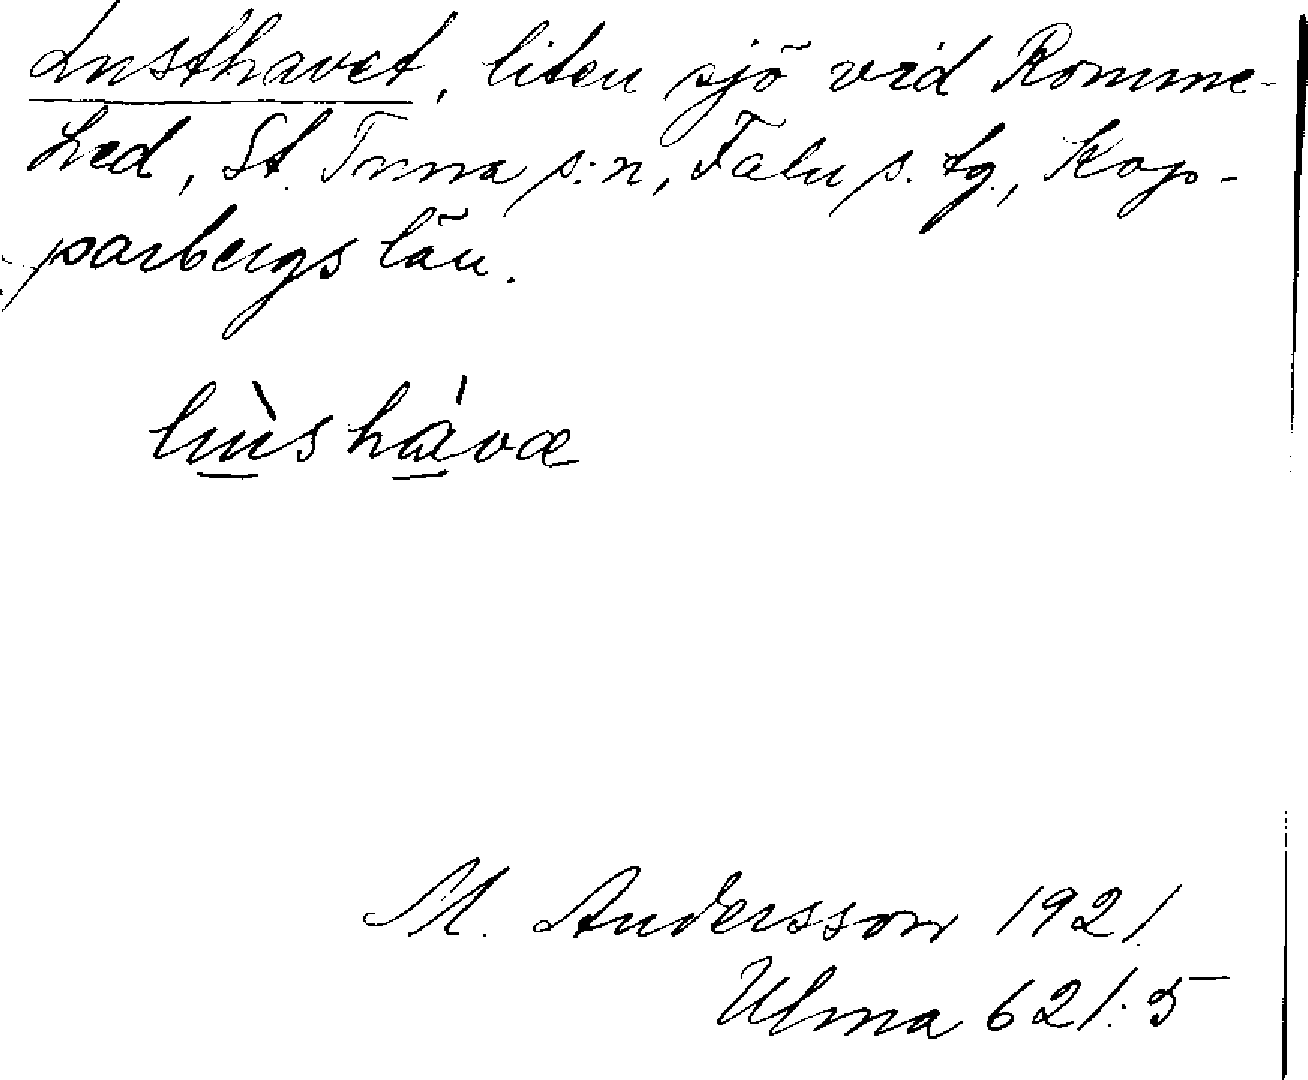 Lusthavet, liten sjö vid Romme-
hed, St. Tuna s:n, Falu s. tg., Kop-
parbergs län.
lùshávæ
M. Andersson 1921.
Ulma 621:5